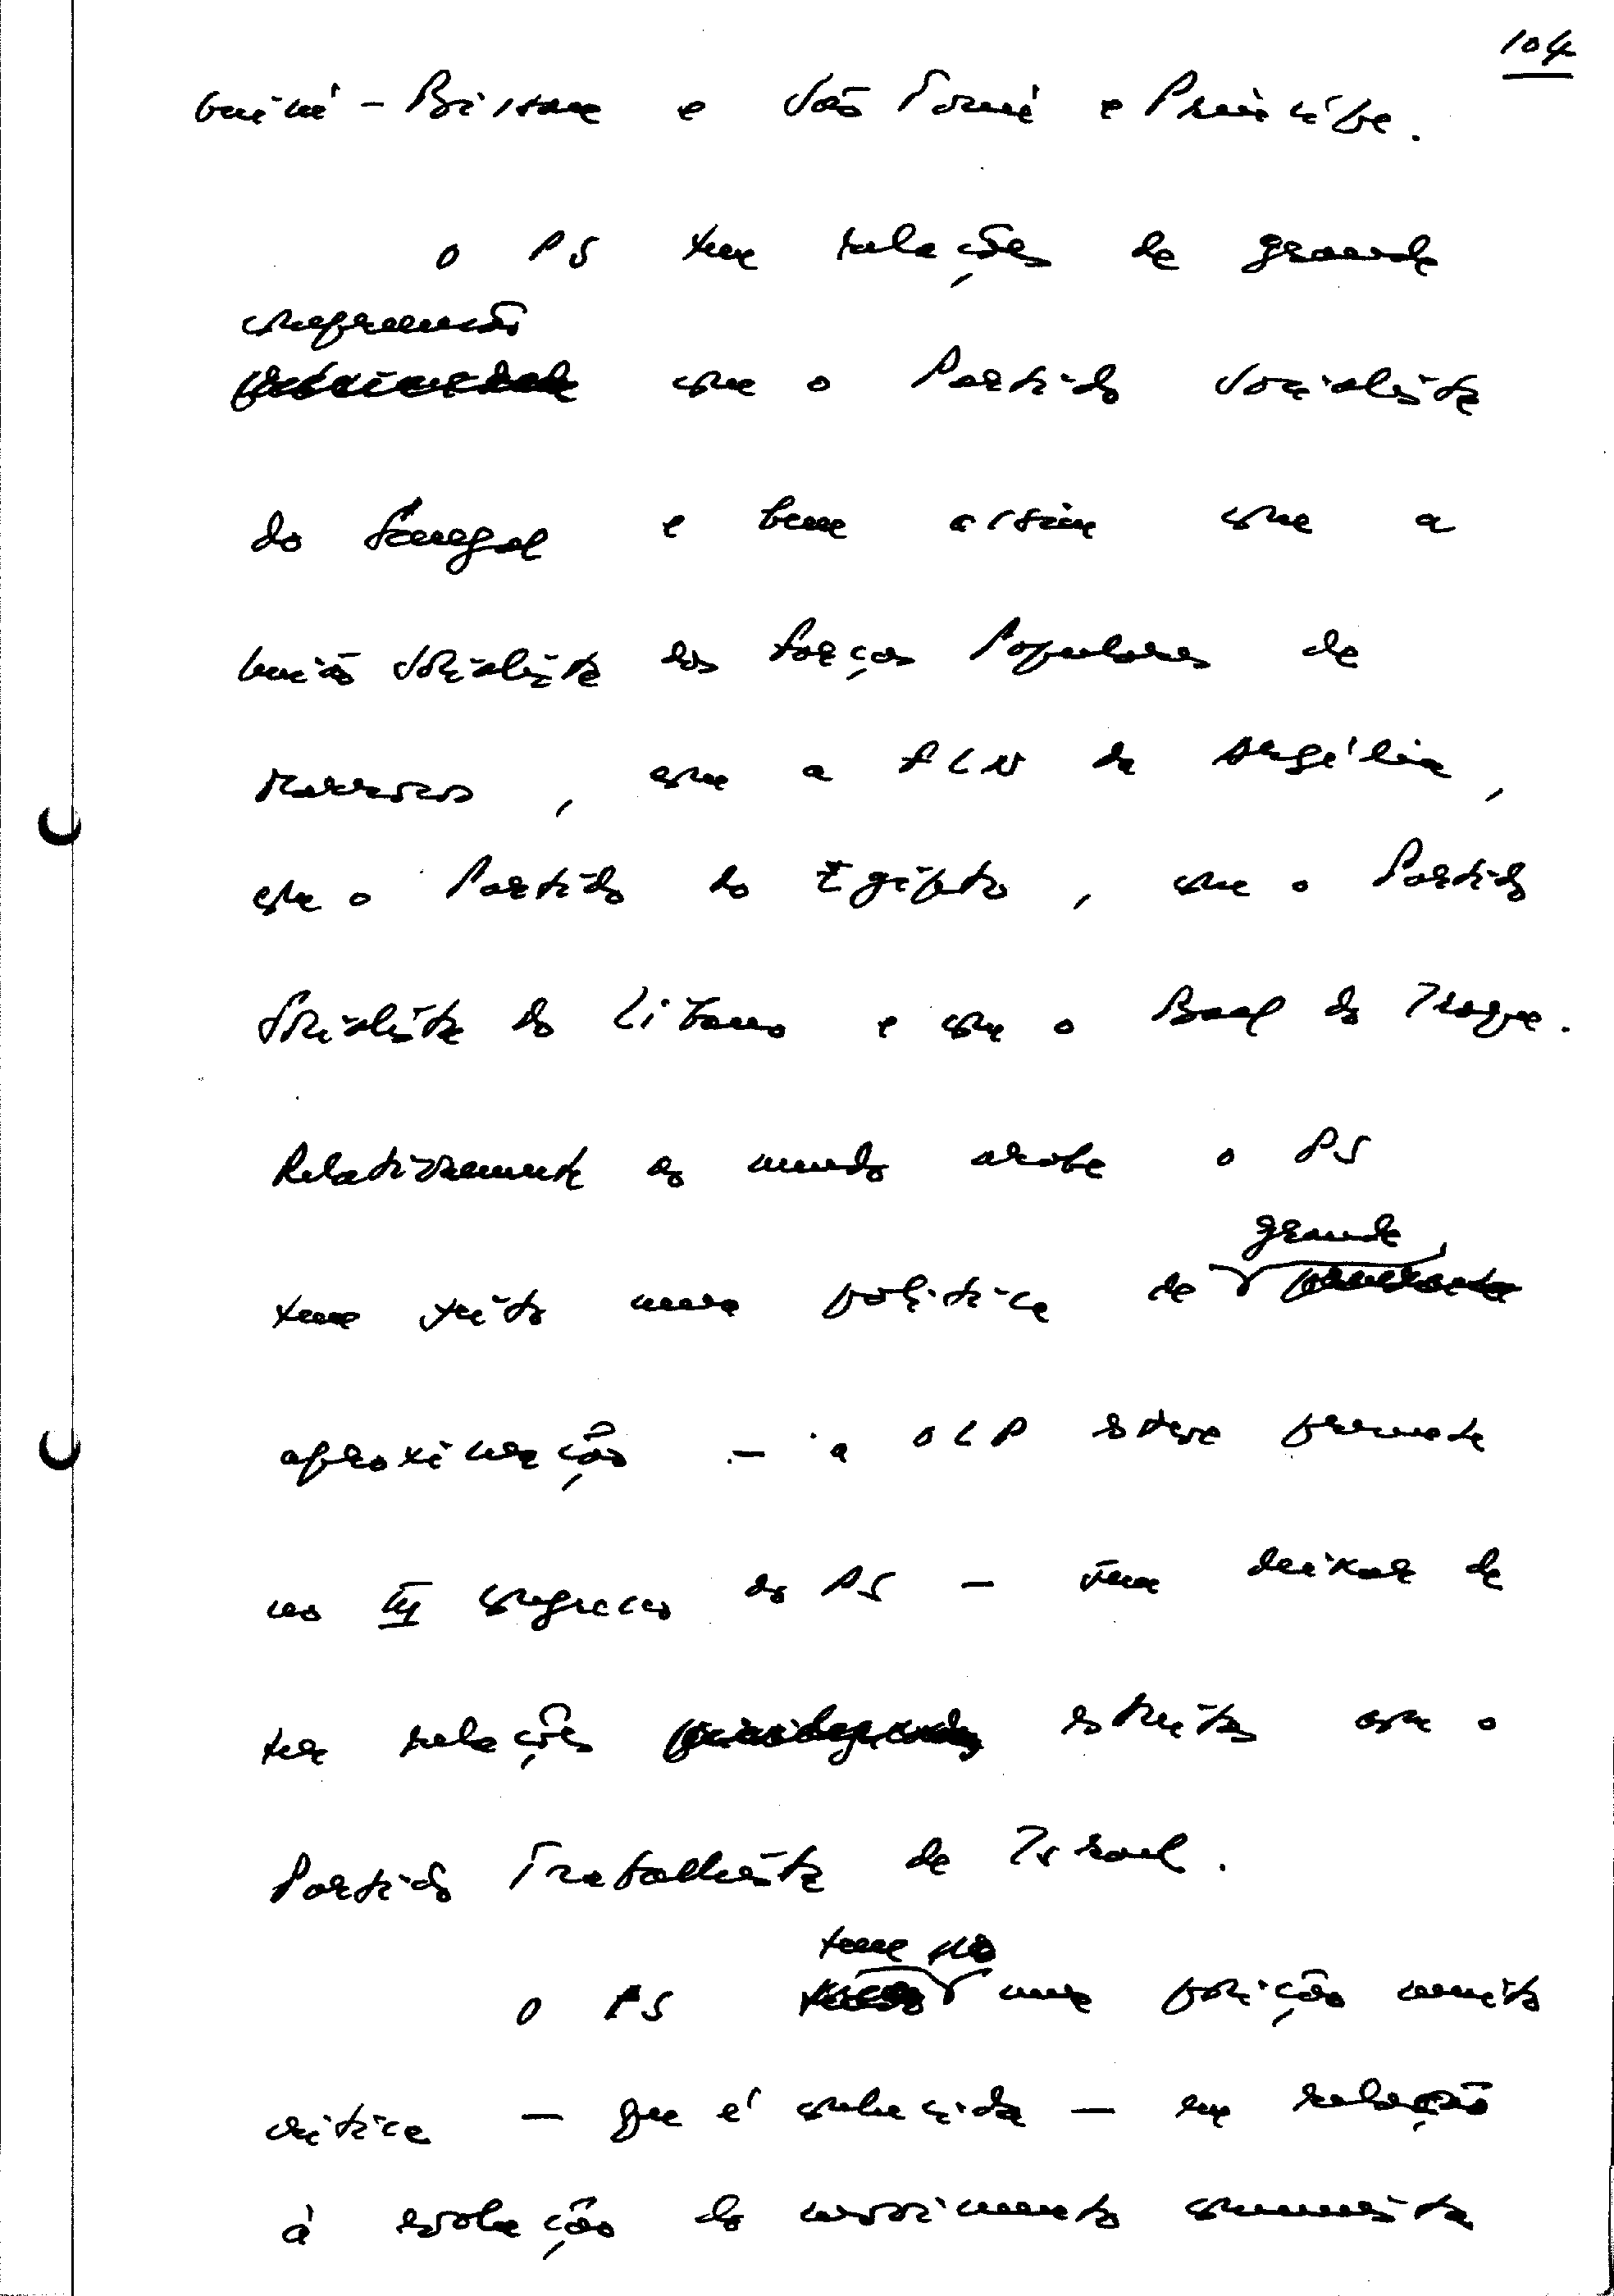 104
Guiné-Bissau e São Tomé e Príncipe.
O PS tem relações de grande
compreensão
com o Partido Socialista
do Senegal e bem assim com a
União Socialista das Forças Populares de
Marrocos, com a FLN da Argélia,
com o Partido do Egipto, com o Partido
Socialista do Líbano e com o Baas do Iraque.
Relativamente ao mundo árabe o PS
grande
tem feito uma política de
aproximação - a OLP esteve presente
no III Congresso do PS - sem deixar de
ter relações estreitas com o
Partido Trabalhista de Israel.
tem tido
O PS uma posição muito
crítica - que é conhecida - em relação
à evolução do movimento comunista